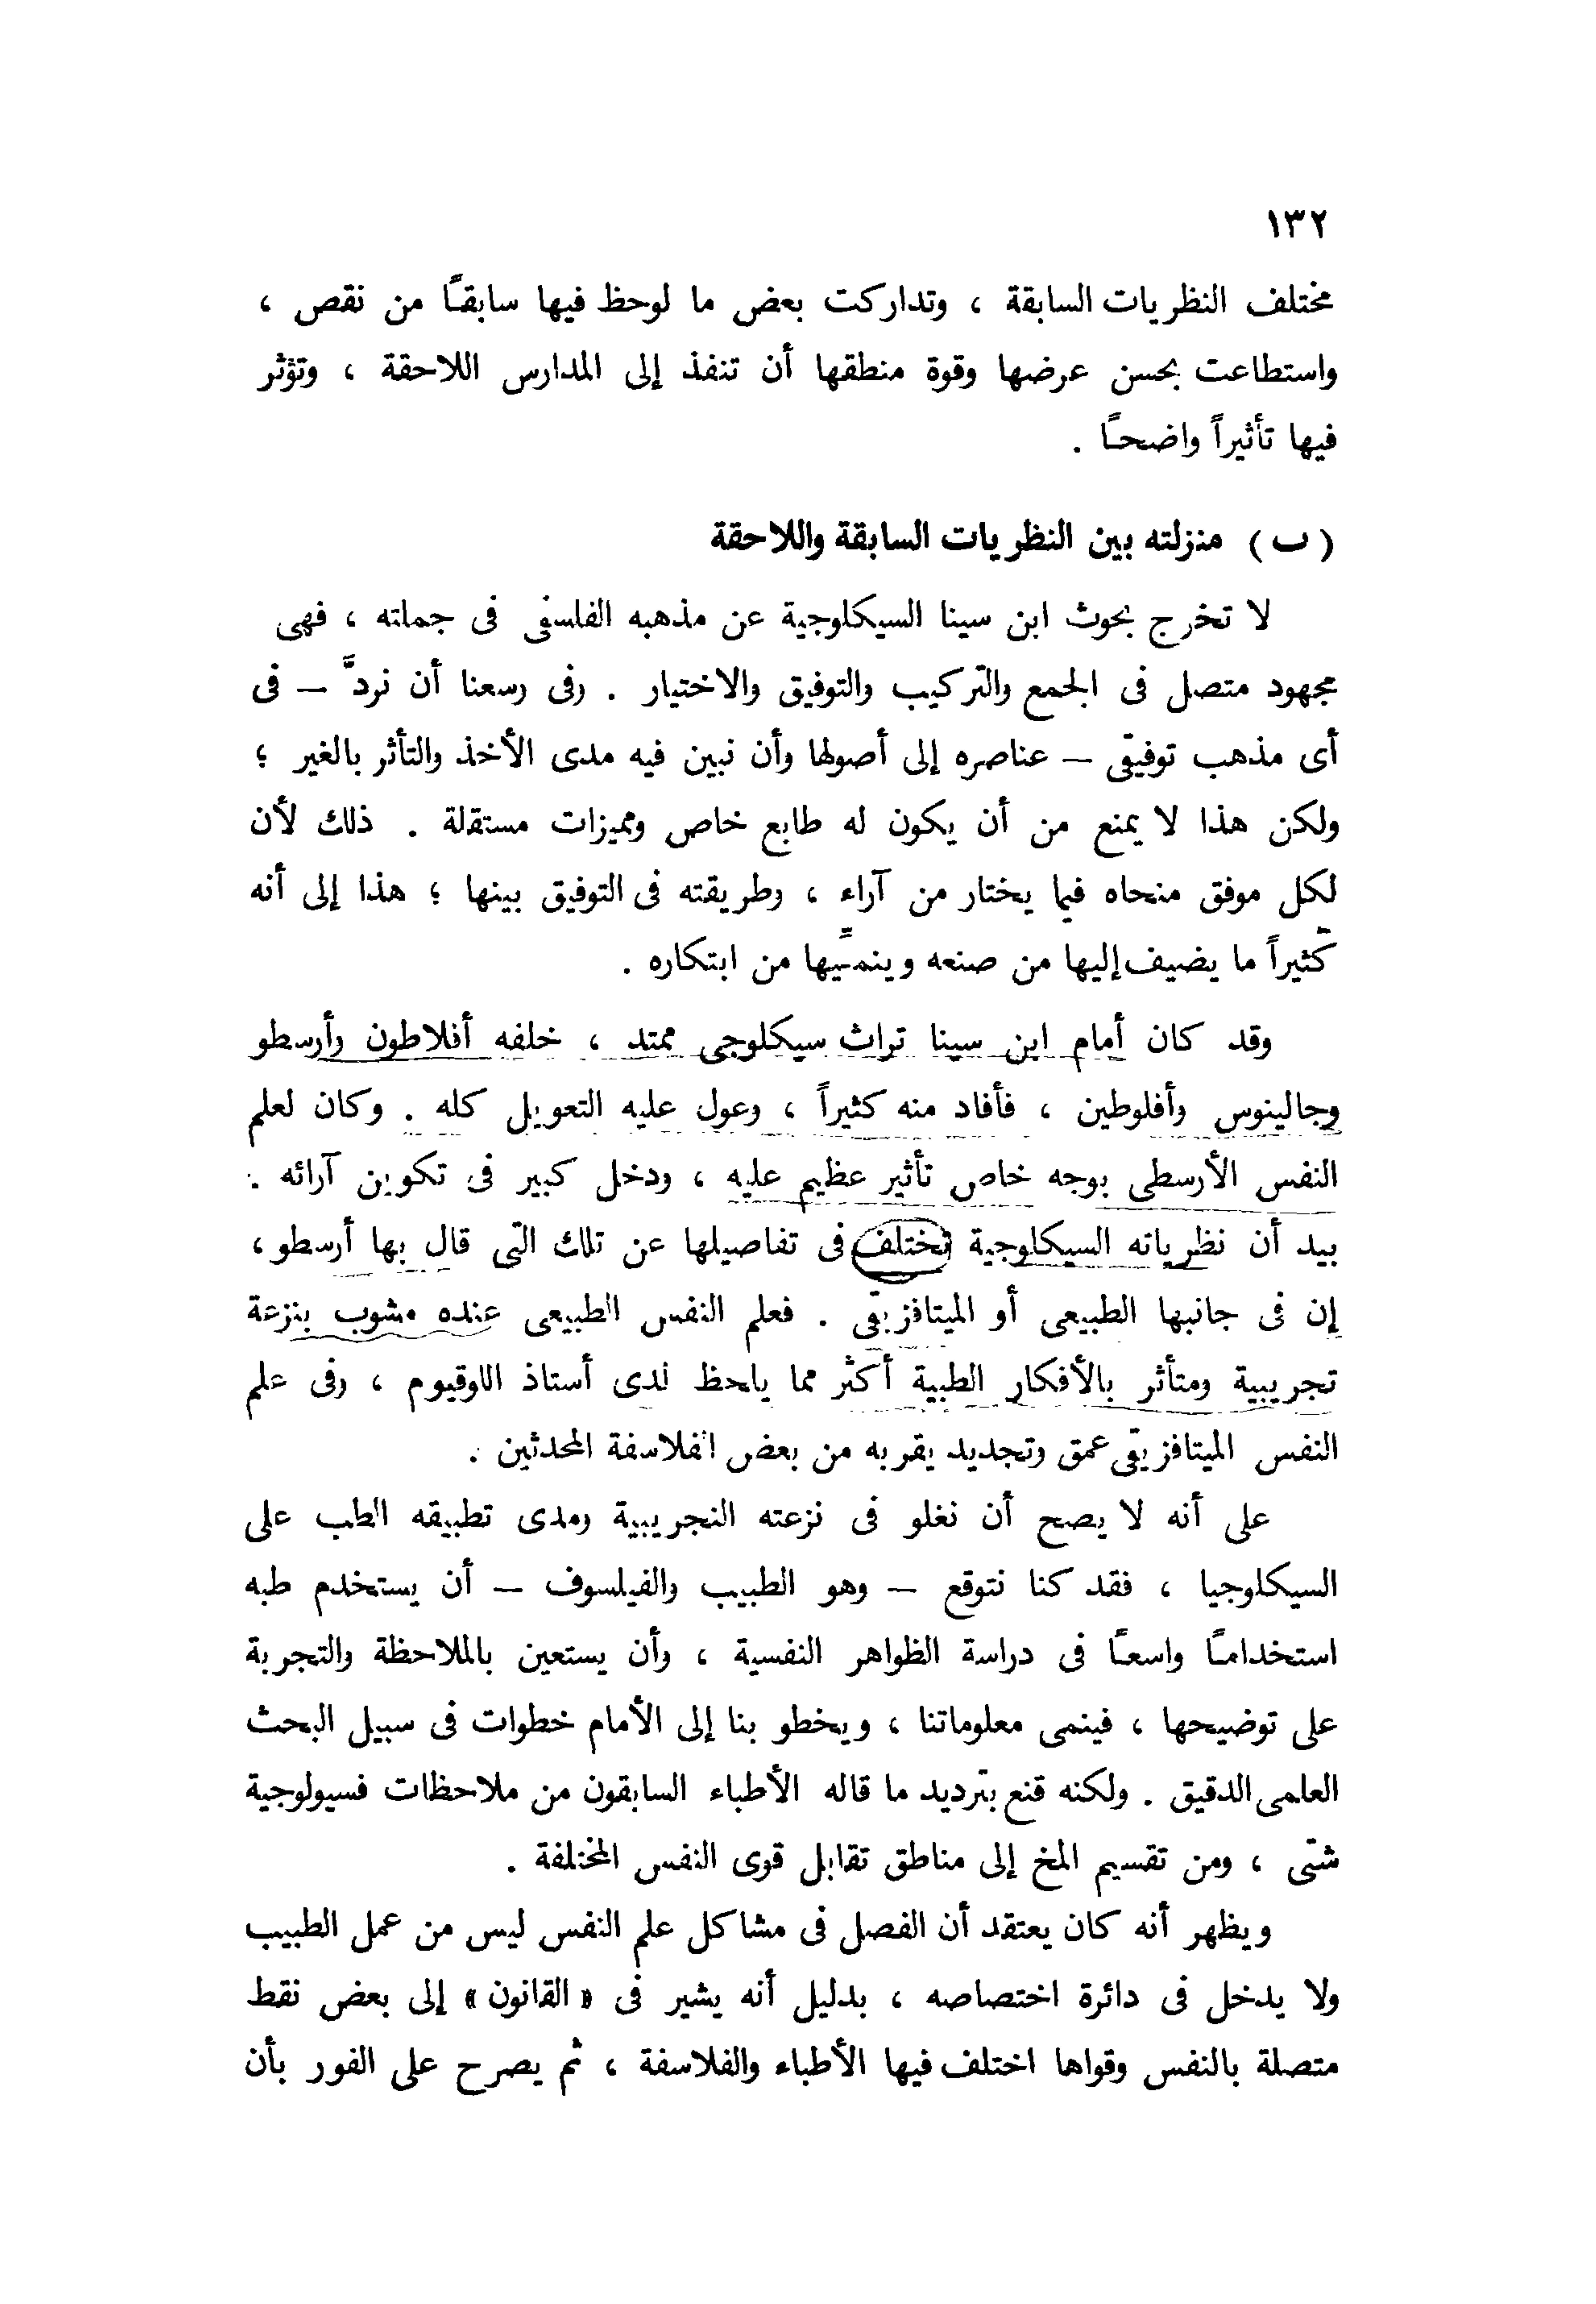 ١٣٢
مختلف النظريات السابقة ، وتداركت بعض ما لوحظ فيها سابقًا من نقص ،
واستطاعت بحسن عرضها وقوة منطقها أن تنفذ إلى المدارس اللاحقة ، وتؤثر
فيها تأثيراً واضحًا .
( ب ) منزلته بين النظريات السابقة واللاحقة
لا تخرج بحوث ابن سينا السيكلوجية عن مذهبه الفلسفى فى جملته ، فهى
مجهود متصل فى الجمع والتركيب والتوفيق والاختيار . وفى وسعنا أن نردَّ – فى
أى مذهب توفيقى – عناصره إلى أصولها وأن نبين فيه مدى الأخذ والتأثر بالغير ؛
ولكن هذا لا يمنع من أن يكون له طابع خاص ومميزات مستقلة . ذلك لأن
لكل موفق منحاه فيما يختار من آراء ، وطريقته فى التوفيق بينها ؛ هذا إلى أنه
كثيراً ما يضيف إليها من صنعه وينمِّيها من ابتكاره .
وقد كان أمام ابن سينا تراث سيكلوجى ممتد ، خلفه أفلاطون وأرسطو
وجالينوس وأفلوطين ، فأفاد منه كثيراً ، وعول عليه التعويل كله . وكان لعلم
النفس الأرسطى بوجه خاص تأثير عظيم عليه ، ودخل كبير فى تكوين آرائه .
بيد أن نظرياته السيكلوجية تختلف فى تفاصيلها عن تلك التى قال بها أرسطو ،
إن فى جانبها الطبيعى أو الميتافزيقى . فعلم النفس الطبيعى عنده مشوب بنزعة
تجريبية ومتأثر بالأفكار الطبية أكثر مما يلحظ لدى أستاذ اللوقيوم ، وفى علم
النفس الميتافزيقى عمق وتجديد يقربه من بعض الفلاسفة المحدثين .
على أنه لا يصح أن نغلو فى نزعته التجريبية ومدى تطبيقه الطب على
السيكلوجيا ، فقد كنا نتوقع – وهو الطبيب والفيلسوف – أن يستخدم طبه
استخدامًا واسعًا فى دراسة الظواهر النفسية ، وأن يستعين بالملاحظة والتجربة
على توضيحها ، فينمى معلوماتنا ، ويخطو بنا إلى الأمام خطوات فى سبيل البحث
العلمى الدقيق . ولكنه قنع بترديد ما قاله الأطباء السابقون من ملاحظات فسيولوجية
شتى ، ومن تقسيم المخ إلى مناطق تقابل قوى النفس المختلفة .
ويظهر أنه كان يعتقد أن الفصل فى مشاكل علم النفس ليس من عمل الطبيب
ولا يدخل فى دائرة اختصاصه ، بدليل أنه يشير فى « القانون » إلى بعض نقط
متصلة بالنفس وقواها اختلف فيها الأطباء والفلاسفة ، ثم يصرح على الفور بأن